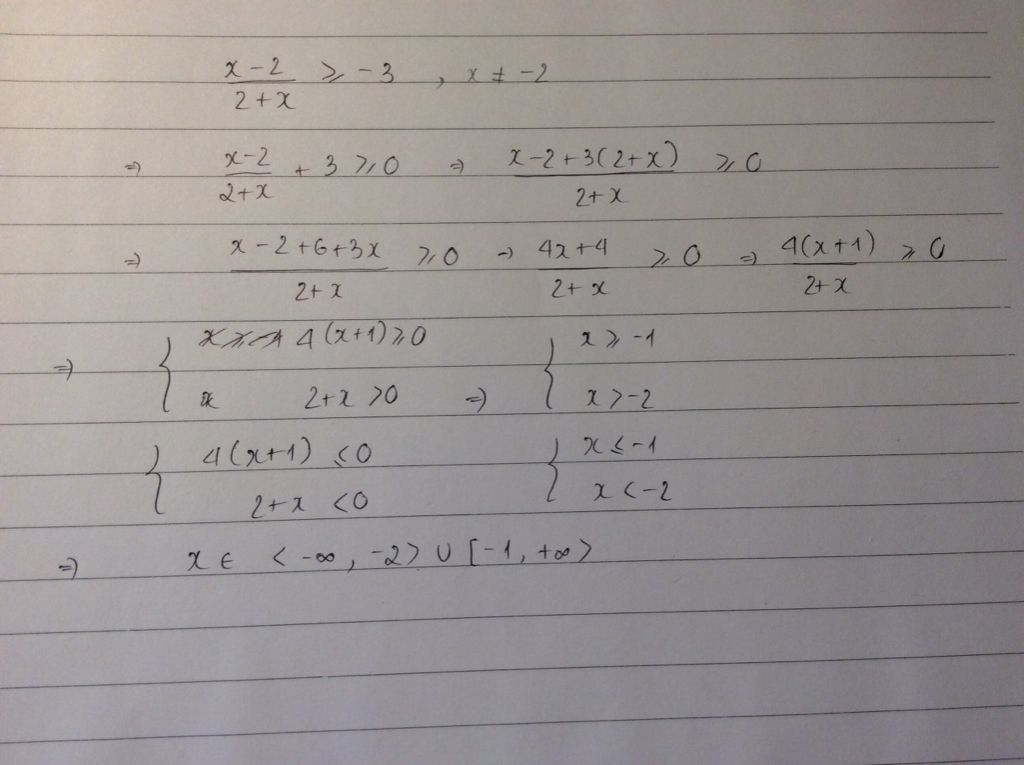 x-2/2+x ⩾ -3 , x ≠ -2
⇒ x-2/2+x + 3 ⩾ 0 ⇒ x-2+3(2+x)/2+x ⩾ 0
⇒ x-2+6+3x/2+x ⩾ 0 ⇒ 4x+4/2+x ⩾ 0 ⇒ 4(x+1)/2+x ⩾ 0
⇒ { 4(x+1) ⩾ 0 { x ⩾ -1
2+x > 0 ⇒ x > -2
{ 4(x+1) ≤ 0 { x ≤ -1
2+x < 0 x < -2
⇒ x ∈ < -∞, -2> ∪ [-1, +∞>